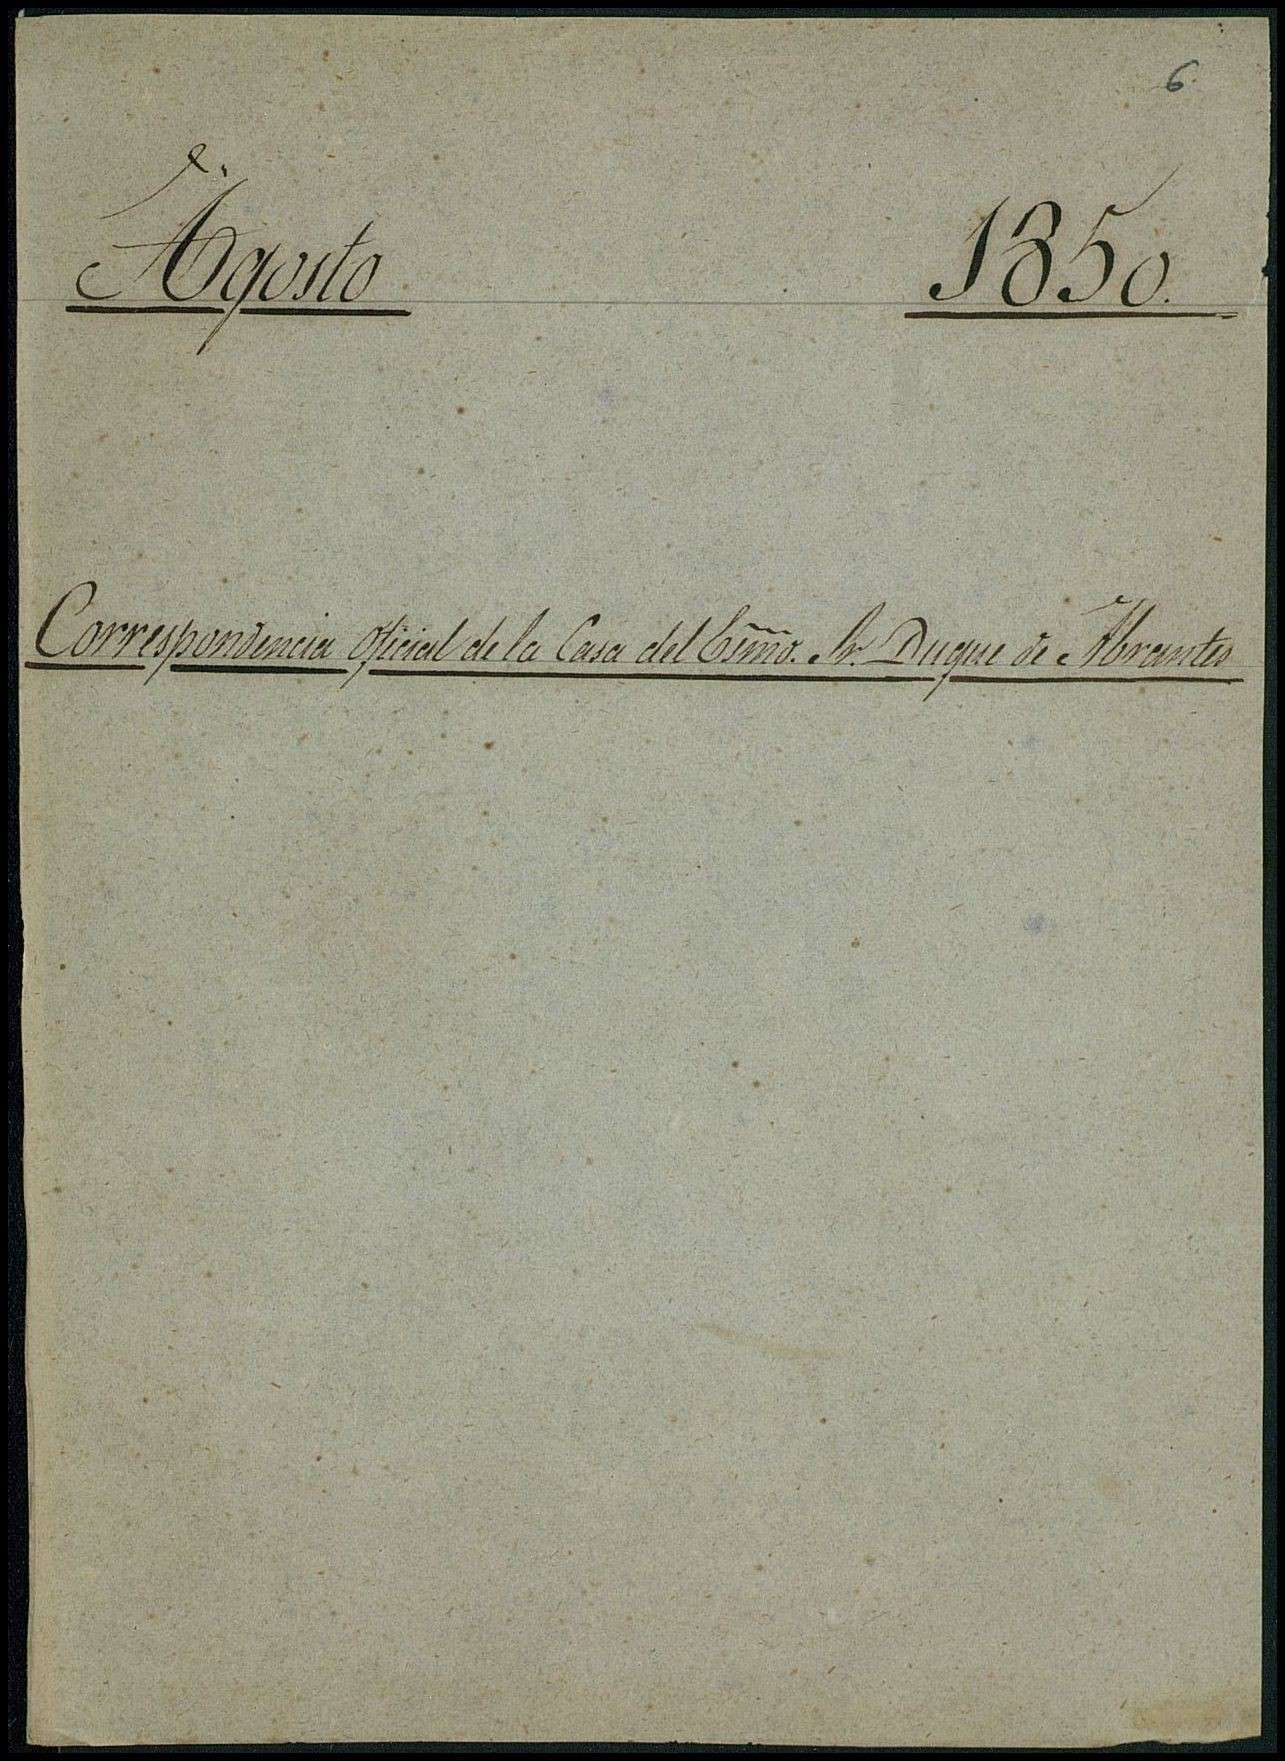 6.
Agosto 1850.
Correspondencia oficial de la Casa del Esmo. Sr. Duque de Abrantes